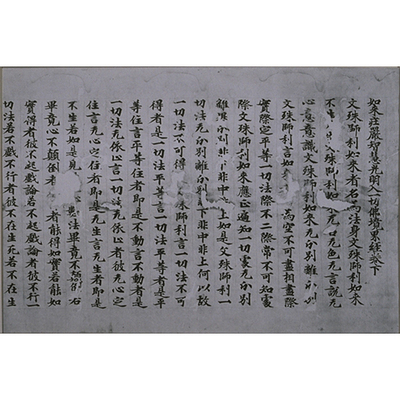 如来莊嚴智慧光明入一切佛境界經卷下
文殊師利如来者名為法身文殊師利如来
不生 文殊師利如来无名无色无言說无
心意意識文殊師利如来无分別離分別
文殊師利言如来 為空不可盡相盡際
實際定平等一切法際不二際常不可知處
際文殊師利如来應正遍知一切處无分別
離分別非下非中 上如是文殊師利一
切法无分別離分別 下非中非上何以故
一切法不可得 殊師利言一切法不可
得者是一切法平等 切法平等者是平
等住言平等住者即是不動言不動者是
一切法无依止言一切法无依者彼无心定
住言无心定住者即是无生言无生者即是
不生若如是見 法畢竟不顛倒
畢竟心不顛倒者 者能得如實若能如
實得者彼不起戲論若不起戲論者彼不行一
切法若不戲不行者彼不在生死若不在生